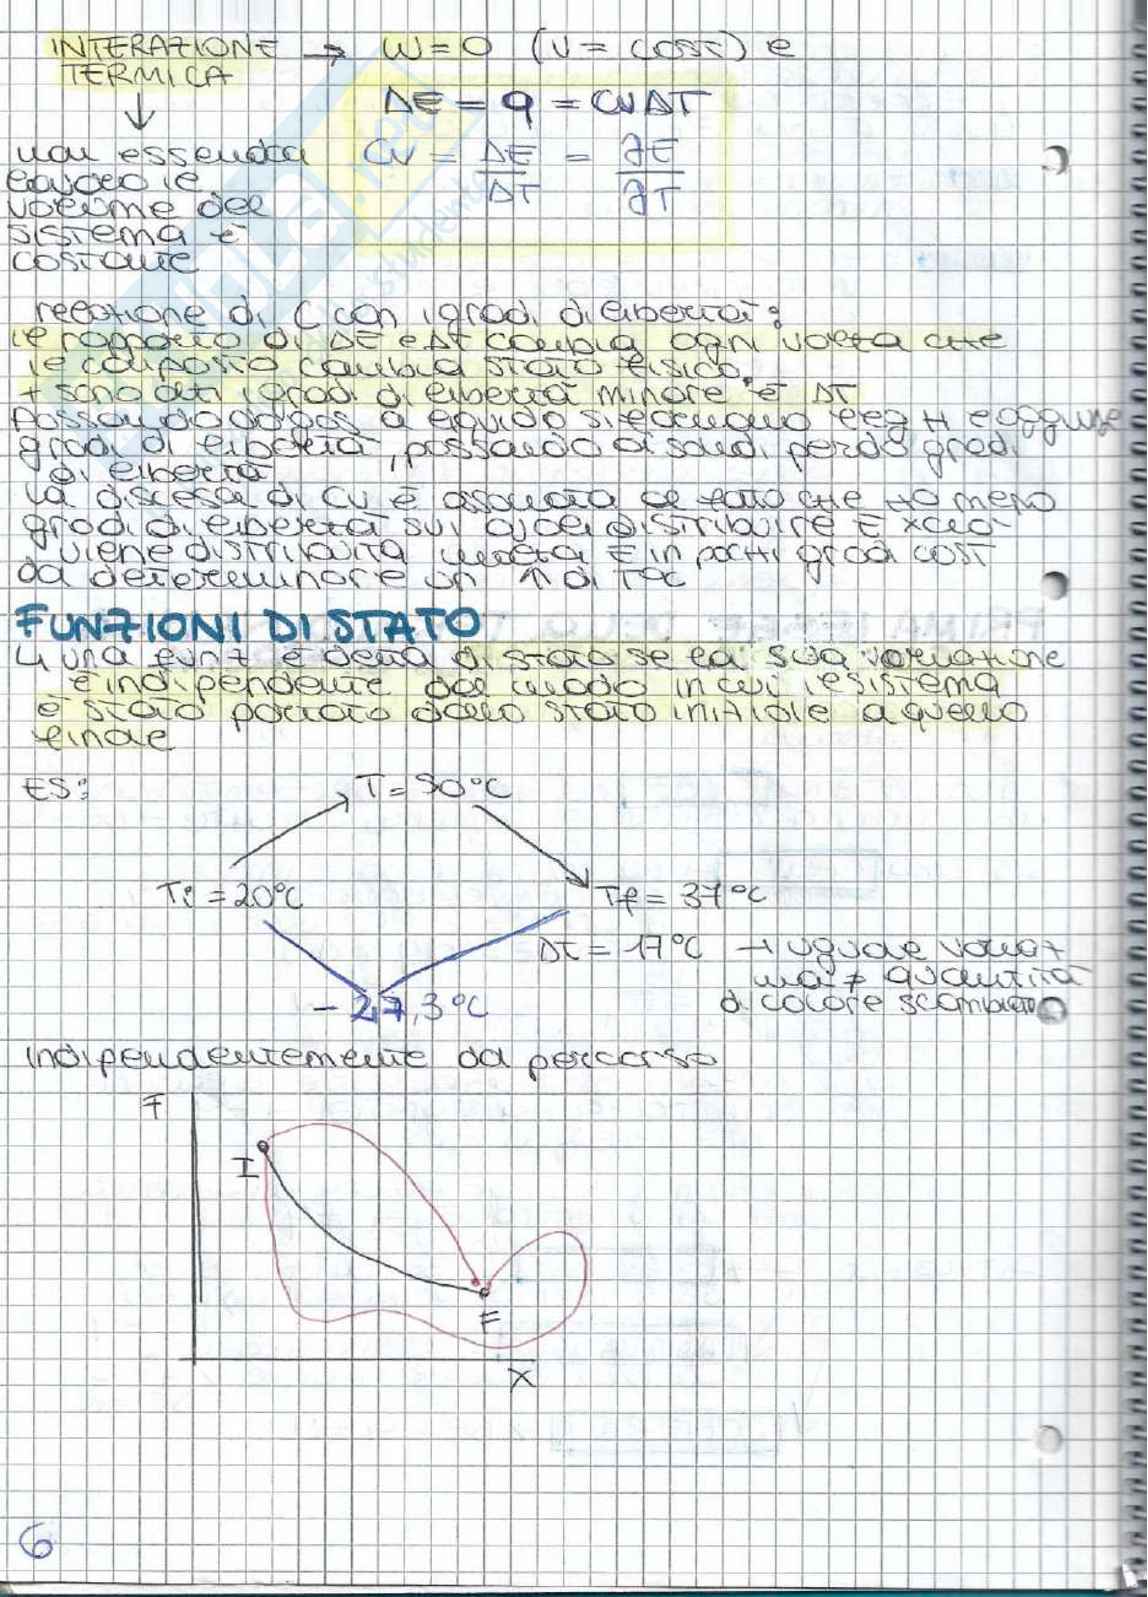 INTERAZIONE → W=0 (V= COST) e
TERMICA
ΔE = q = CvΔT
non essendoci
Cv = ΔE/ΔT = ∂E/∂T
lavoro il
volume del
sistema è
costante
relazione di C con i gradi di libertà:
il rapporto di ΔE e Δt cambia ogni volta che
il composto cambia stato fisico.
+ sono alti i gradi di libertà minore è ΔT
Passando da gas a liquido si formano leg H e aggiunge
gradi di libertà, passando ai solidi perdo gradi
di libertà
La discesa di Cv è associata al fatto che ho meno
gradi di libertà sui quali distribuire E xciò
viene distribuita E in pochi gradi così
da determinare un ↑ di T°C
FUNZIONI DI STATO
↳ una funz è detta di stato se la sua variazione
è indipendente dal modo in cui il sistema
è stato portato dallo stato iniziale a quello
finale
ES:
T= 50°C
Ti = 20°C
Tf = 37°C
ΔT = 17°C → uguale variaz
ma ≠ quantità
di calore scambiato
- 27,3°C
indipendentemente da percorso
F
I
F
X
6